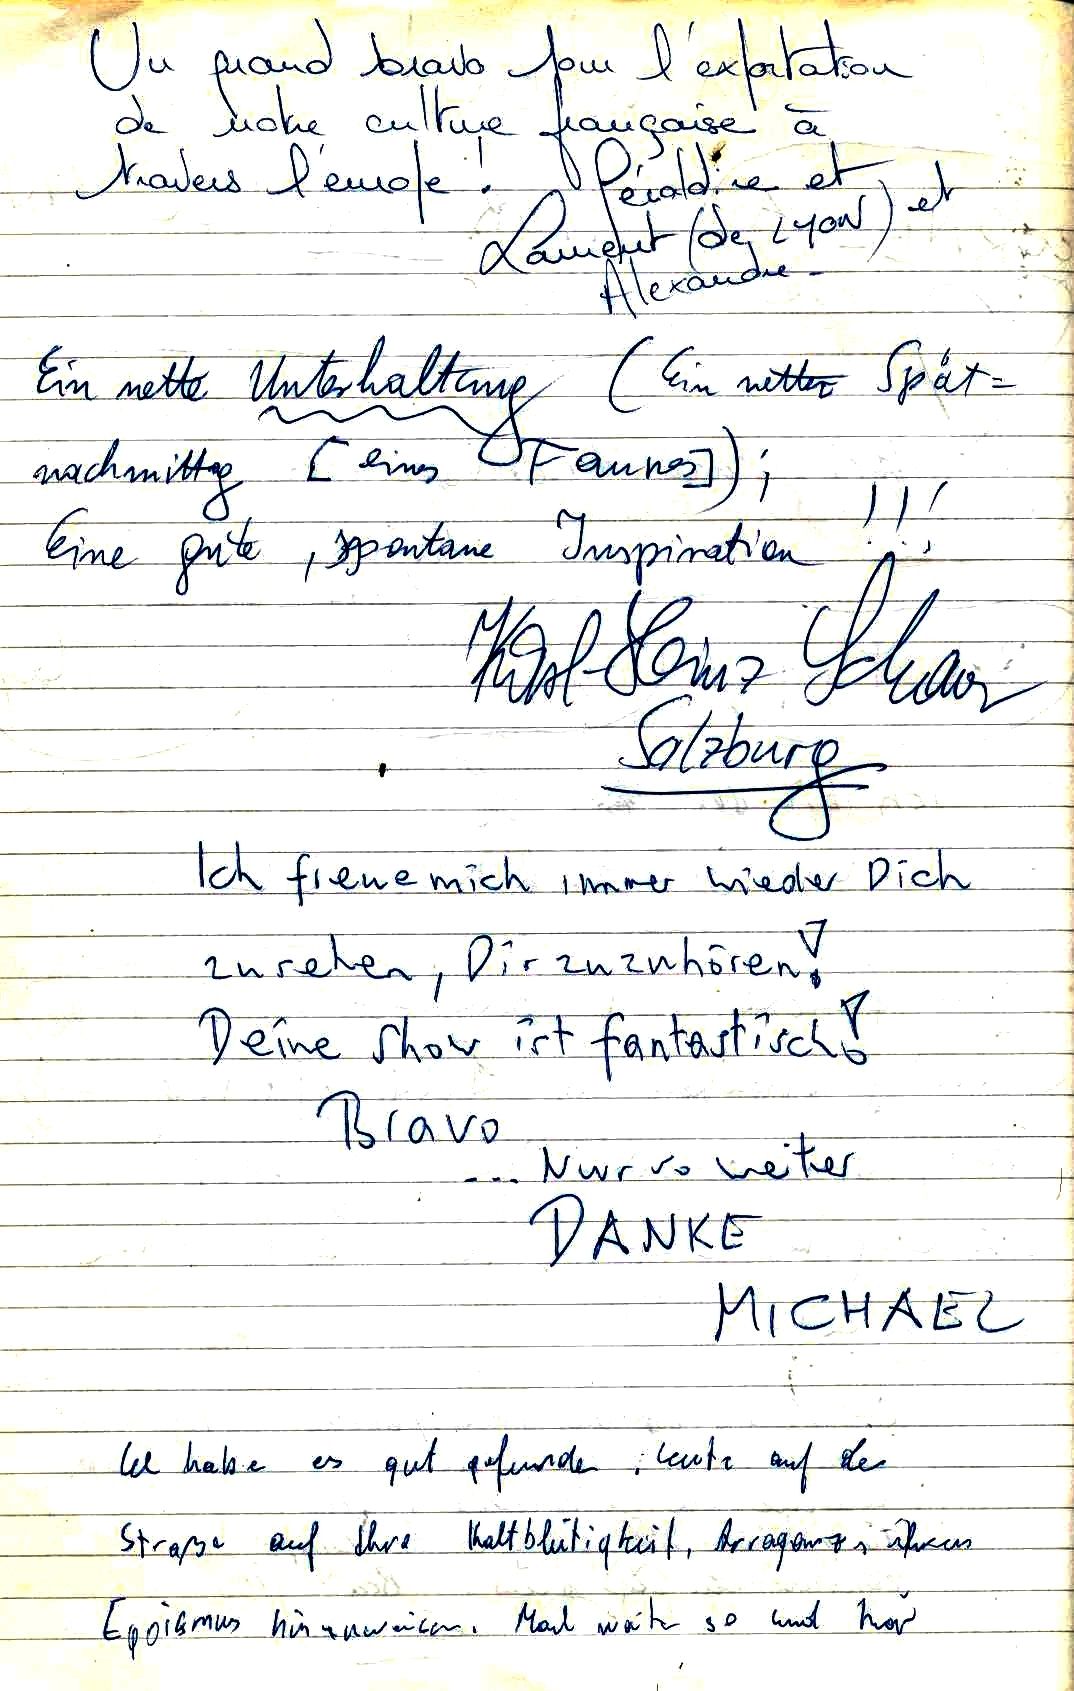 Un grand bravo pour l'exportation
de notre culture française à
travers l'europe ! Géraldine et
Laurent (de LYON) et
Alexandre -
Ein nette Unterhaltung (Ein netter Spät=
nachmittag [eines Faunes]);
Eine gute, spontane Inspiration !!!
Karl-Heinz
Salzburg
Ich freue mich immer wieder Dich
zu sehen, Dir zuzuhören!
Deine Show ist fantastisch!
Bravo
... Nur so weiter
DANKE
MICHAEL
Ich habe es gut gefunden, Leute auf der
Straße auf Ihre Kaltblütigkeit, Arroganz, ihren
Egoismus hinzuweisen. Mach weiter so und hör